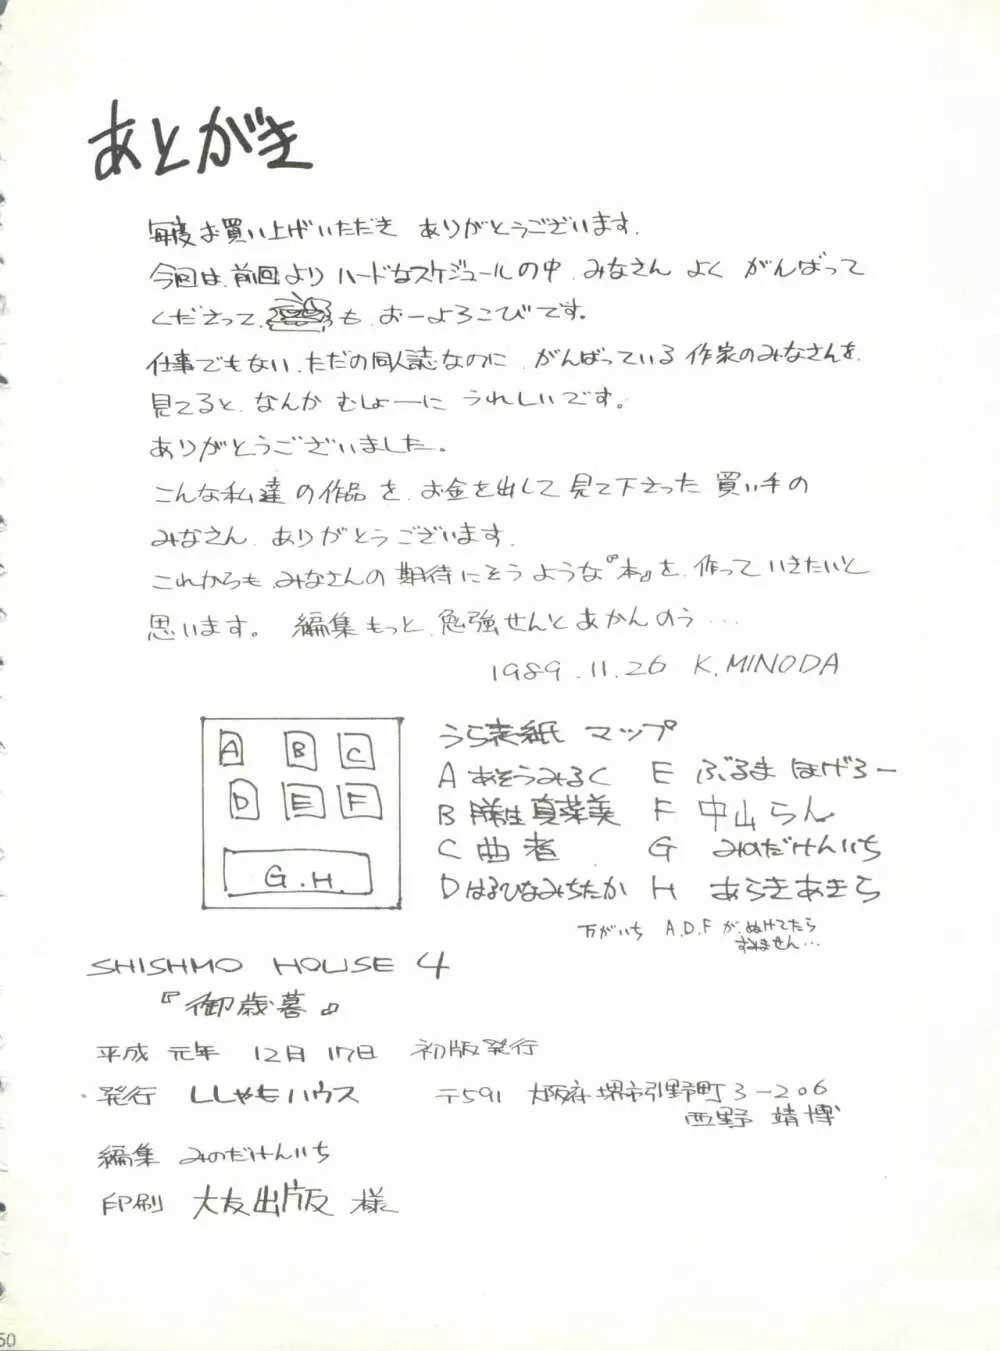 あとがき
毎度お買い上げいただき ありがとうございます.
今回は、前回より ハードなスケジュールの中、みなさん よく がんばって
くださって、も、おーよろこびです。
仕事でもない、ただの同人誌なのに、がんばっている 作家のみなさんを、
見てると、なんか むしょーに うれしいです。
ありがとうございました。
こんな私達の作品を、お金を出して見て下さった買い手の
みなさん、ありがとうございます.
これからも、みなさんの期待にそうような『本』を、作っていきたいと
思います。 編集もっと、勉強せんとあかんのう…
1989.11.26 K.MINODA
A B C
D E F
G.H.
うら表紙 マップ
A あそうみるく E ぶるまほげろー
B 勝生真菜美 F 中山らん
C 曲者 G みのだけんいち
D はるひなみちたか H あらきあきら
万がいち A.D.F が、ぬけてたら
すみません…
SHISHMO HOUSE 4
『御歳暮』
平成 元年 12日 17日 初版発行
・発行 ししゃもハウス 〒591 大阪府堺市引野町3-206
西野 靖博
編集 みのだけんいち
印刷 大友出版 様
50